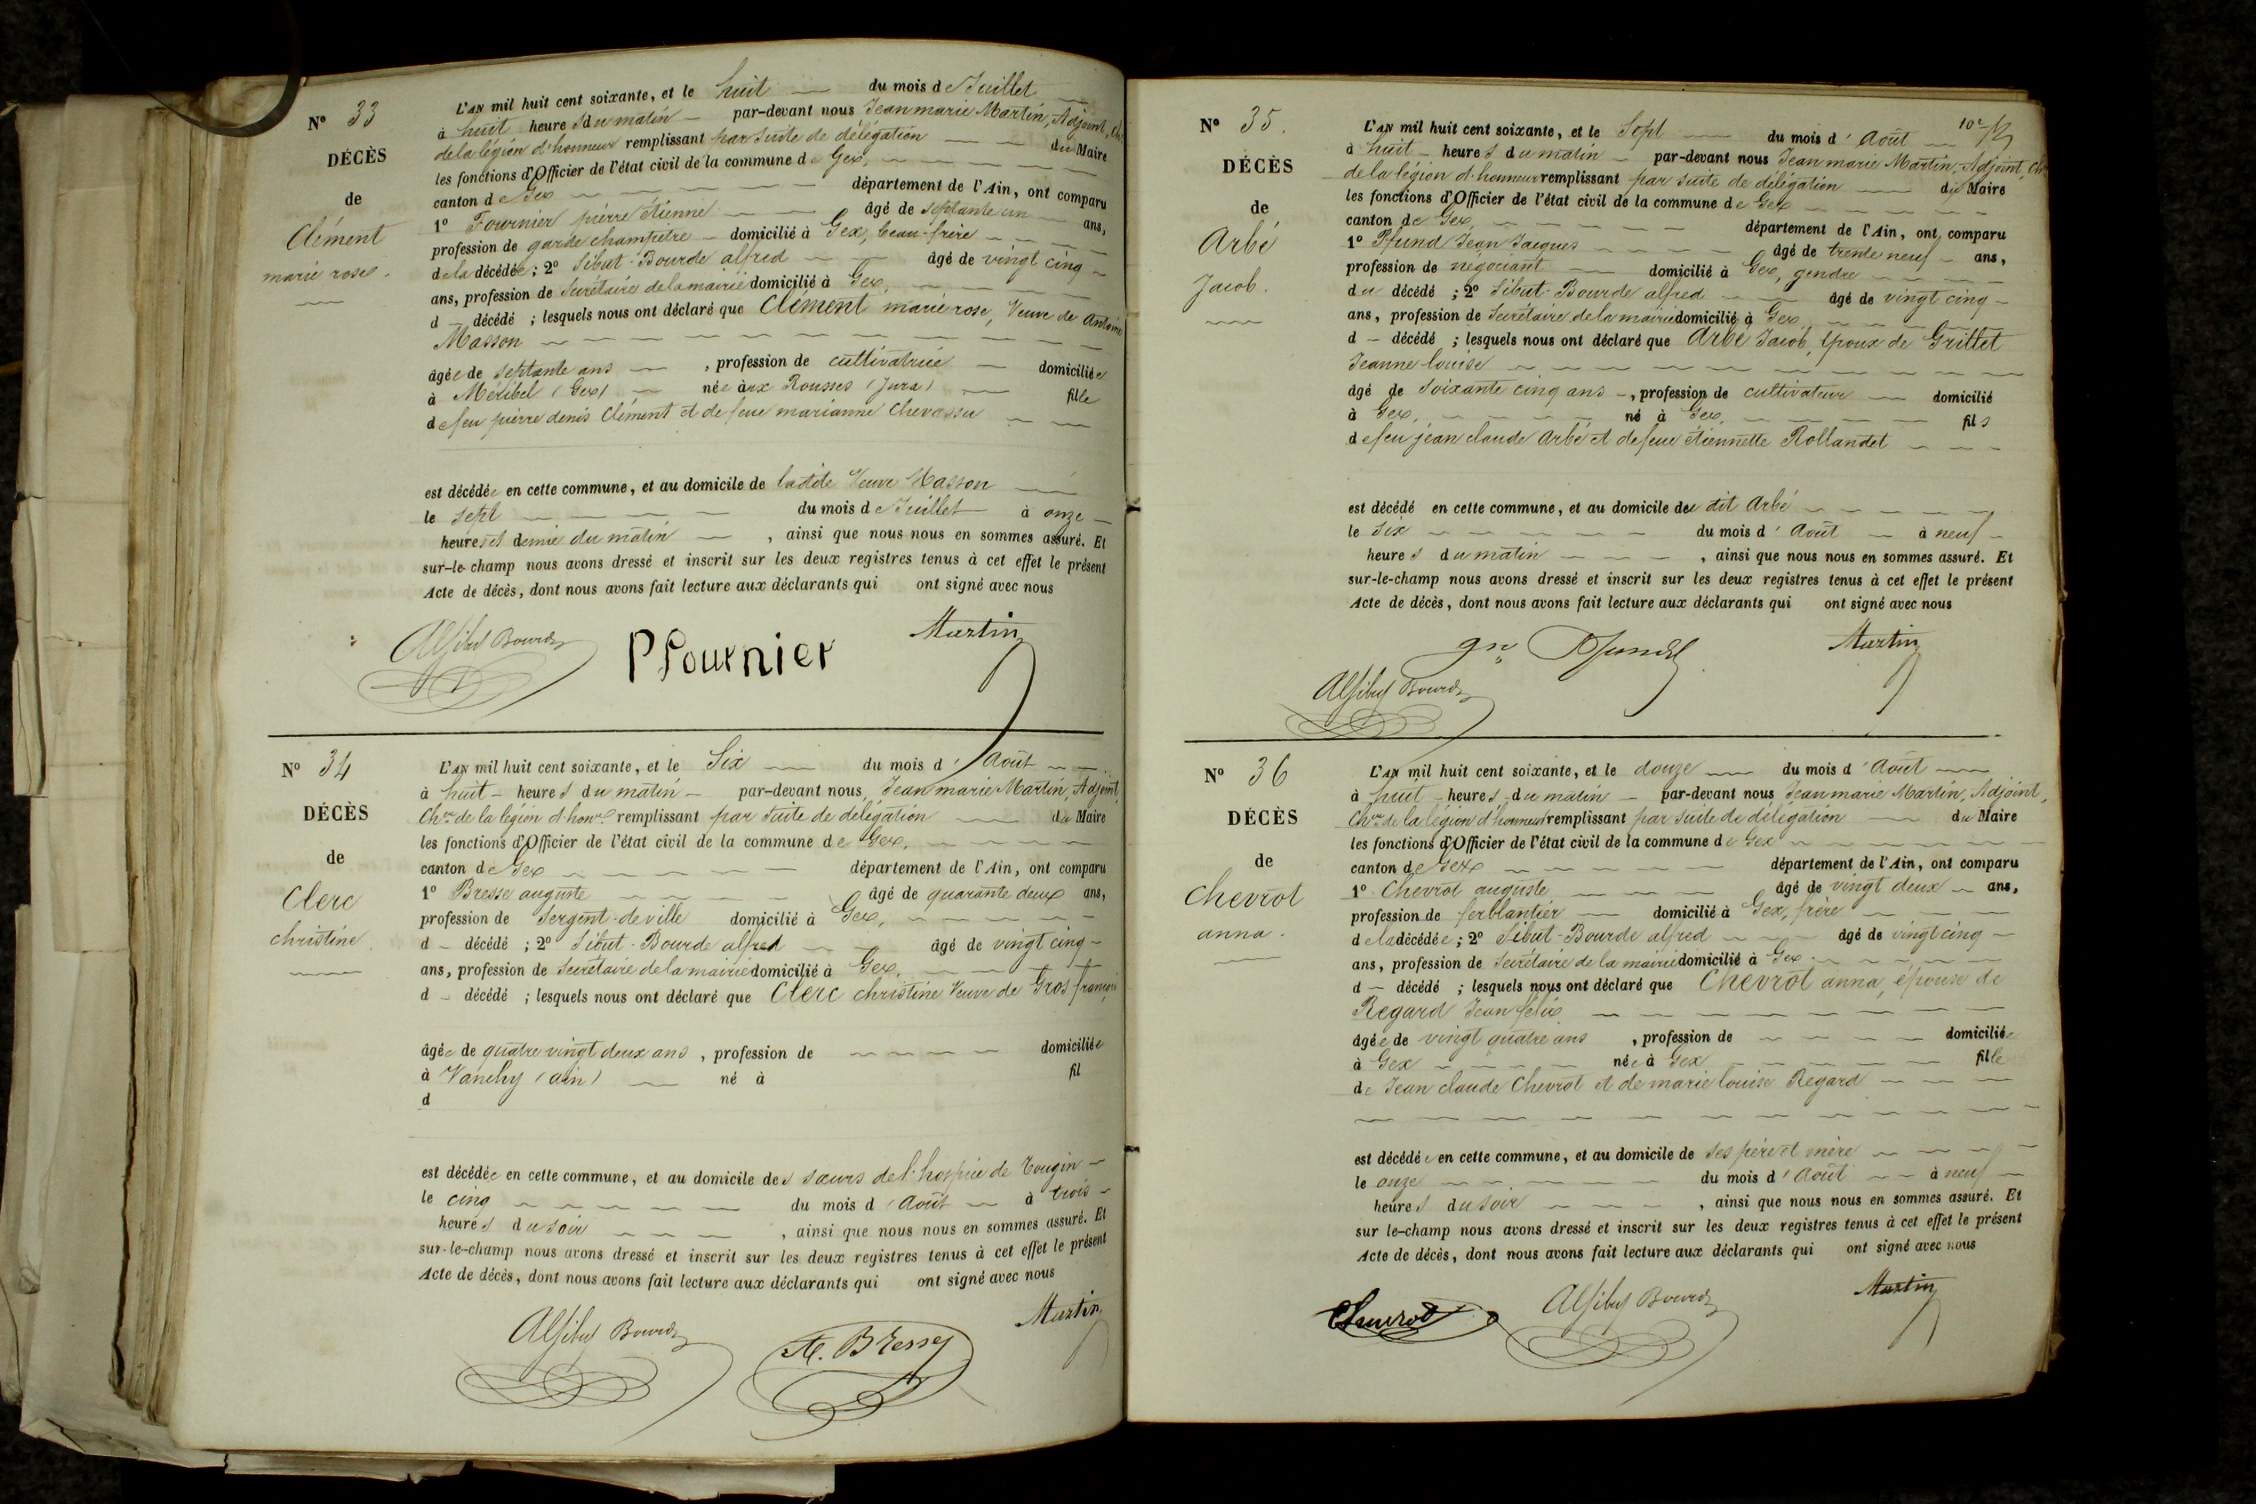 N° 33
DÉCÈS
de
Clément
marie rose.
L'AN mil huit cent soixante, et le huit du mois de Juillet
à huit heures du matin par-devant nous Jean marie Martin, Adjoint, Chr
de la légion d'honneur remplissant par suite de délégation du Maire
les fonctions d'Officier de l'état civil de la commune de Gex,
canton de Gex département de l'Ain, ont comparu
1° Fournier pierre étienne âgé de septante un ans,
profession de garde champêtre domicilié à Gex, beau-frère
de la décédée; 2° Sibut-Bourde alfred âgé de vingt cinq
ans, profession de Secrétaire de la mairie domicilié à Gex,
d décédé ; lesquels nous ont déclaré que Clément marie rose, Veuve de Antoine
Masson
âgée de septante ans , profession de cultivatrice domiciliée
à Méribel (Gex) née aux Rousses (Jura) fille
de feu pierre denis Clément et de feue marianne Chevassu
est décédée en cette commune, et au domicile de ladite Veuve Masson
le sept du mois de Juillet à onze
heures et demie du matin , ainsi que nous nous en sommes assuré. Et
sur-le-champ nous avons dressé et inscrit sur les deux registres tenus à cet effet le présent
Acte de décès, dont nous avons fait lecture aux déclarants qui ont signé avec nous
Alf Sibut Bourde
P fournier
Martin
N° 34
DÉCÈS
de
Clerc
christine.
L'AN mil huit cent soixante, et le Six du mois d'Août
à huit heures du matin par-devant nous, Jean marie Martin, Adjoint,
Chr de la légion d'honr remplissant par suite de délégation du Maire
les fonctions d'Officier de l'état civil de la commune de Gex,
canton de Gex département de l'Ain, ont comparu
1° Bresse auguste âgé de quarante deux ans,
profession de Sergent-de ville domicilié à Gex,
d décédé ; 2° Sibut-Bourde alfred âgé de vingt cinq
ans, profession de Secrétaire de la mairie domicilié à Gex,
d décédé ; lesquels nous ont déclaré que Clerc christine Veuve de Gros françois
âgée de quatre vingt deux ans , profession de domiciliée
à Vanchy (ain) né à fil
d
est décédée en cette commune, et au domicile des sœurs de l'hospice de Tougin
le cinq du mois d'Août à trois
heures du soir , ainsi que nous nous en sommes assuré. Et
sur-le-champ nous avons dressé et inscrit sur les deux registres tenus à cet effet le présent
Acte de décès, dont nous avons fait lecture aux déclarants qui ont signé avec nous
Alf Sibut Bourde
A. Bresse
Martin
N° 35.
DÉCÈS
de
Arbé
Jacob.
L'AN mil huit cent soixante, et le Sept du mois d'Août
à huit heures du matin par-devant nous Jean marie Martin, Adjoint, Chr
de la légion d'honneur remplissant par suite de délégation du Maire
les fonctions d'Officier de l'état civil de la commune de Gex
canton de Gex, département de l'Ain, ont comparu
1° Pfund Jean Jacques âgé de trente neuf ans,
profession de négociant domicilié à Gex, gendre
du décédé ; 2° Sibut-Bourde alfred âgé de vingt cinq
ans, profession de Secrétaire de la mairie domicilié à Gex,
d décédé ; lesquels nous ont déclaré que Arbé Jacob, époux de Grillet
Jeanne louise
âgé de Soixante cinq ans , profession de cultivateur domicilié
à Gex, né à Gex, fils
de feu jean claude Arbé et de feue étiennette Rollandet
est décédé en cette commune, et au domicile du dit Arbé
le Six du mois d'Août à neuf
heures du matin , ainsi que nous nous en sommes assuré. Et
sur-le-champ nous avons dressé et inscrit sur les deux registres tenus à cet effet le présent
Acte de décès, dont nous avons fait lecture aux déclarants qui ont signé avec nous
Pfund
Martin
Alf Sibut Bourde
N° 36
DÉCÈS
de
Chevrot
anna.
L'AN mil huit cent soixante, et le douze du mois d'Août
à huit heures du matin par-devant nous Jean marie Martin, Adjoint,
Chr de la légion d'honneur remplissant par suite de délégation du Maire
les fonctions d'Officier de l'état civil de la commune de Gex
canton de Gex département de l'Ain, ont comparu
1° Chevrot auguste âgé de vingt deux ans,
profession de ferblantier domicilié à Gex, frère
de la décédée; 2° Sibut-Bourde alfred âgé de vingt cinq
ans, profession de Secrétaire de la mairie domicilié à Gex
d décédé ; lesquels nous ont déclaré que Chevrot anna, épouse de
Regard Jean félix
âgée de vingt quatre ans , profession de domiciliée
à Gex née à Gex fille
de Jean claude Chevrot et de marie louise Regard
est décédée en cette commune, et au domicile de ses père et mère
le onze du mois d'Août à neuf
heures du soir , ainsi que nous nous en sommes assuré. Et
sur le-champ nous avons dressé et inscrit sur les deux registres tenus à cet effet le présent
Acte de décès, dont nous avons fait lecture aux déclarants qui ont signé avec nous
Chevrot
Alf Sibut Bourde
Martin